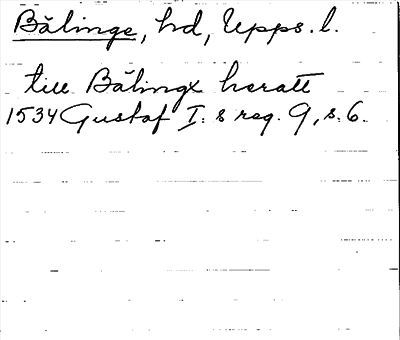 Bälinge, hd, Upps. l.
till Bälingx heratt
1534 Gustaf I:s reg. 9, s. 6.